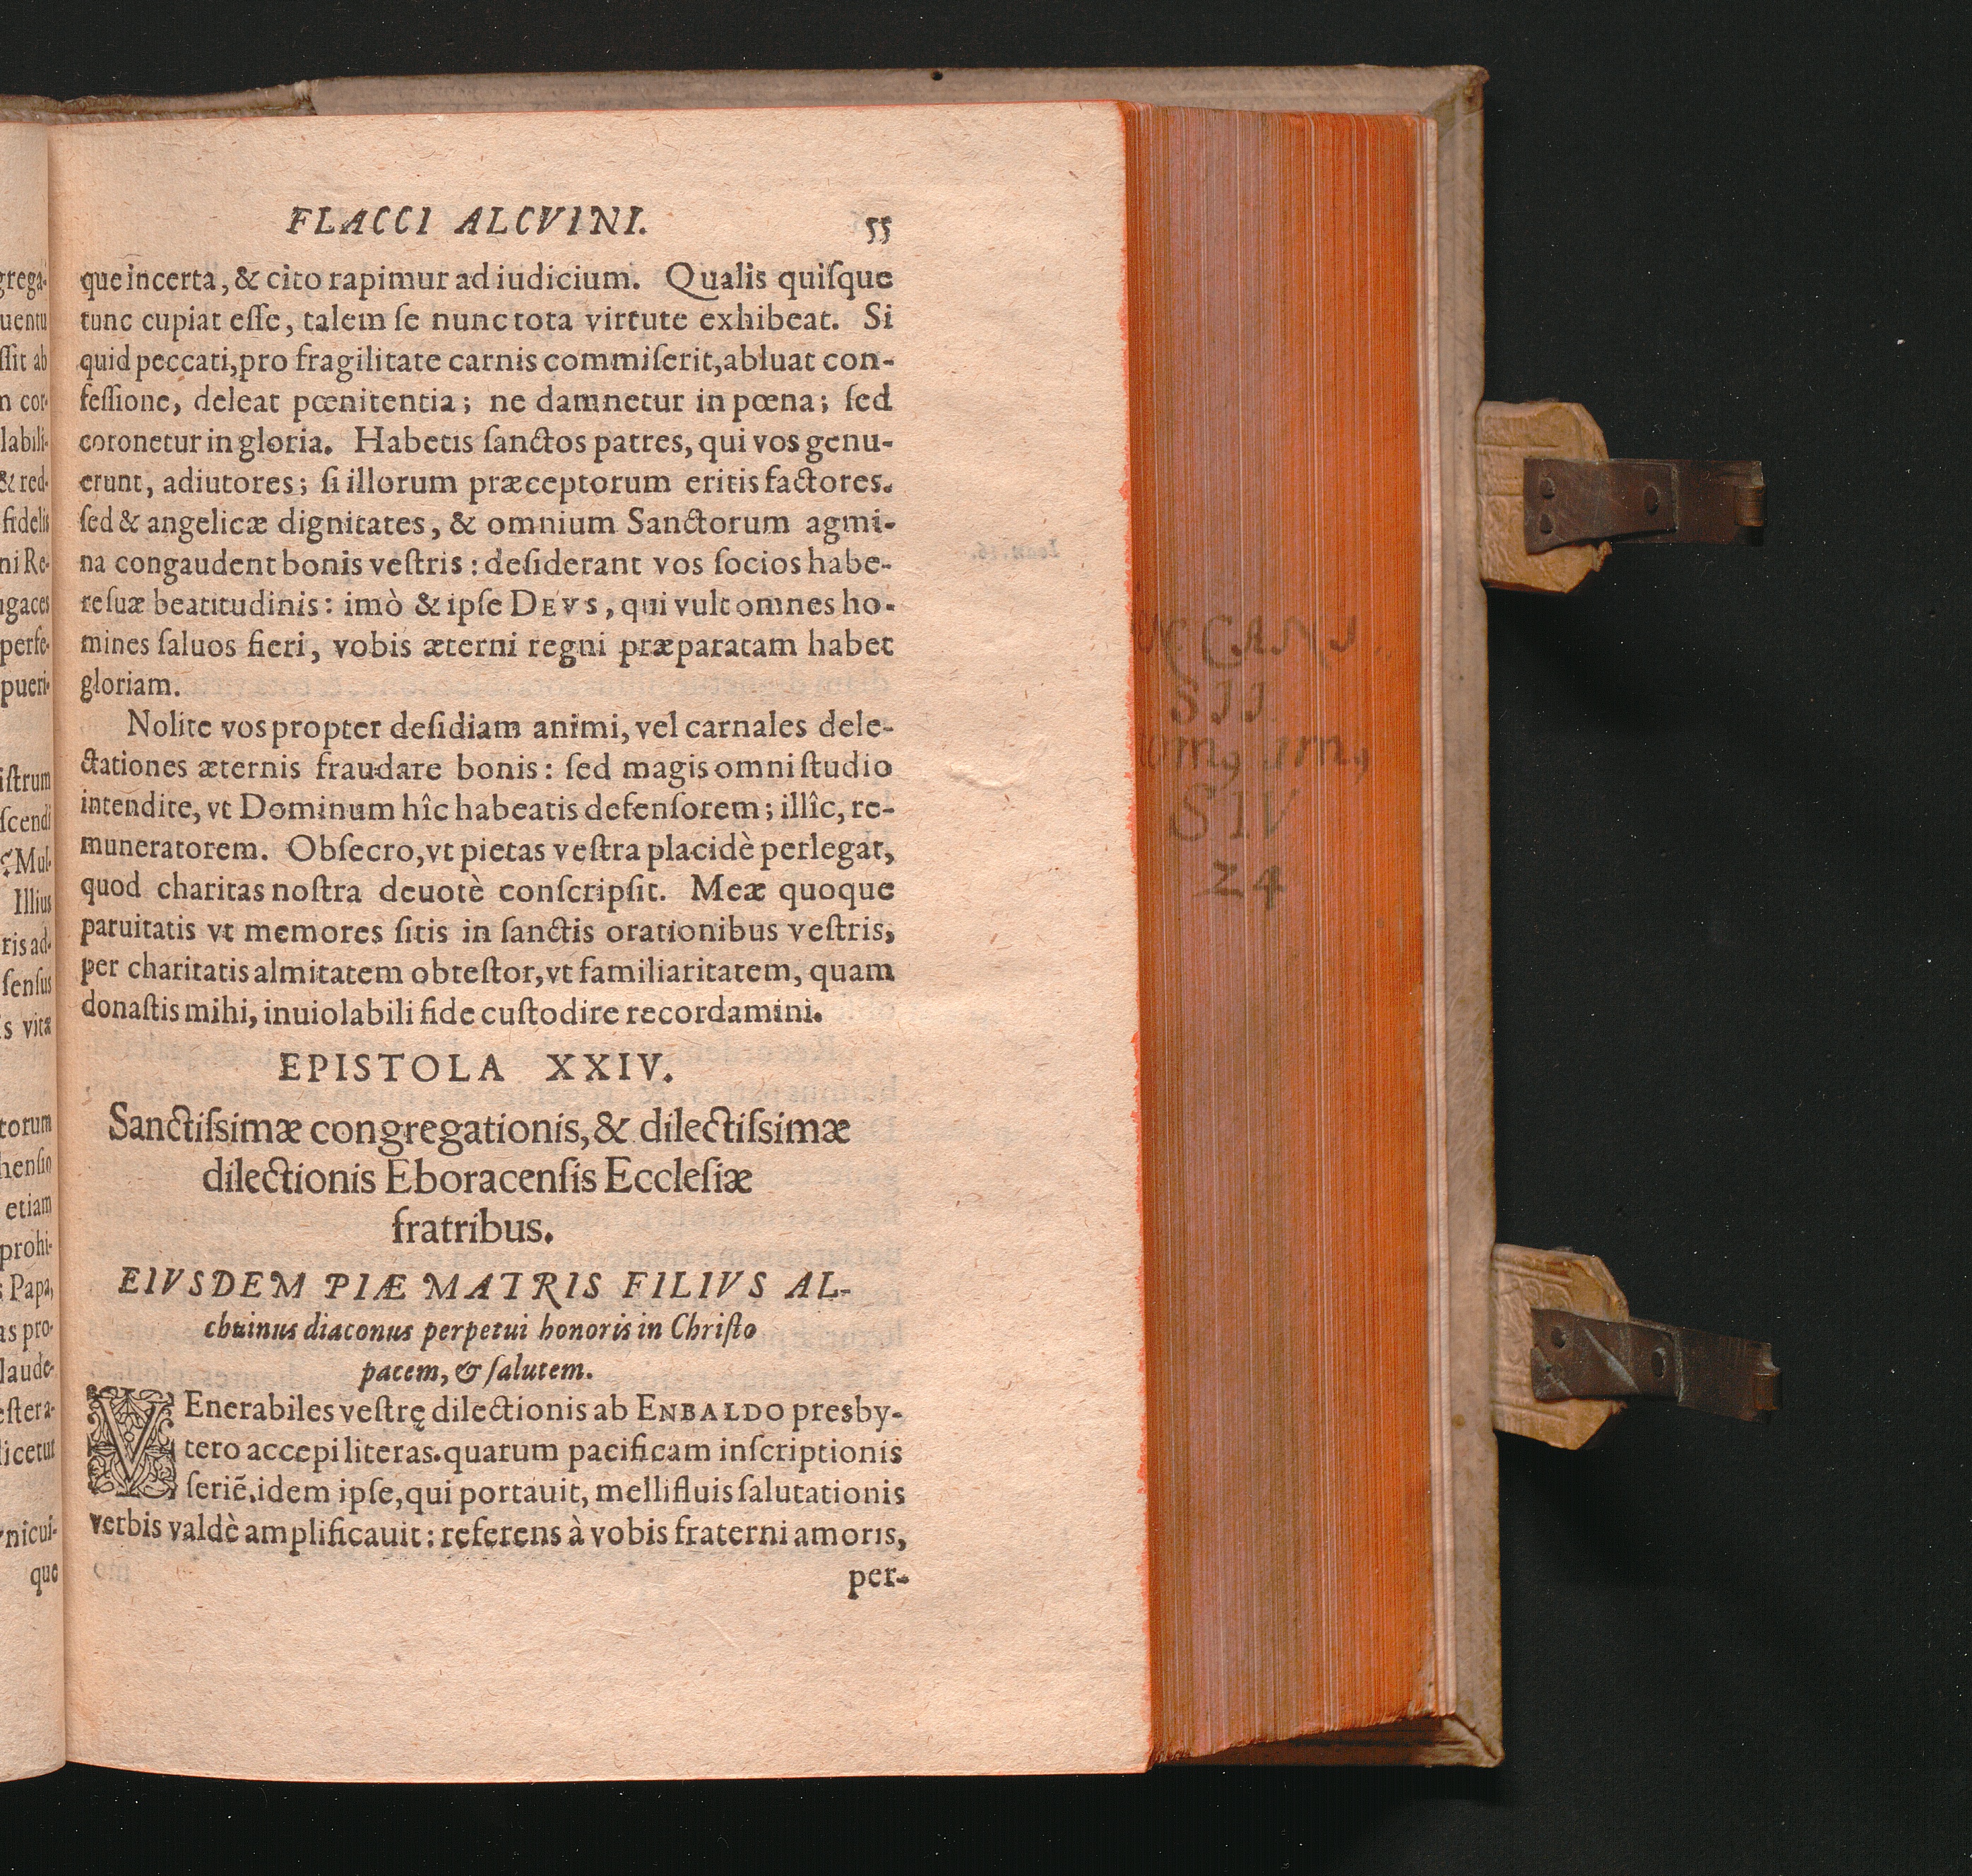 FLACCI ALCVINI. 55
que incerta, & cito rapimur ad iudicium. Qualis quiſque
tunc cupiat eſſe, talem ſe nunc tota virtute exhibeat. Si
quid peccati, pro fragilitate carnis commiſerit, abluat con-
feſſione, deleat pœnitentia; ne damnetur in pœna; ſed
coronetur in gloria. Habetis ſanctos patres, qui vos genu-
erunt, adiutores; ſi illorum præceptorum eritis factores.
ſed & angelicæ dignitates, & omnium Sanctorum agmi-
na congaudent bonis veſtris: deſiderant vos ſocios habe-
re ſuæ beatitudinis: imò & ipſe DEVS, qui vult omnes ho-
mines ſaluos fieri, vobis æterni regni præparatam habet
gloriam.
Nolite vos propter deſidiam animi, vel carnales dele-
ctationes æternis fraudare bonis: ſed magis omni ſtudio
intendite, vt Dominum hîc habeatis defenſorem; illîc, re-
muneratorem. Obſecro, vt pietas veſtra placidè perlegat,
quod charitas noſtra deuotè conſcripſit. Meæ quoque
paruitatis vt memores ſitis in ſanctis orationibus veſtris,
per charitatis almitatem obteſtor, vt familiaritatem, quam
donaſtis mihi, inuiolabili fide cuſtodire recordamini.
EPISTOLA XXIV.
Sanctiſsimæ congregationis, & dilectiſsimæ
dilectionis Eboracenſis Eccleſiæ
fratribus.
EIVSDEM PIÆ MATRIS FILIVS AL-
chuinus diaconus perpetui honoris in Chriſto
pacem, & ſalutem.
VEnerabiles veſtrę dilectionis ab ENBALDO presby-
tero accepi literas. quarum pacificam inſcriptionis
ſeriẽ, idem ipſe, qui portauit, mellifluis ſalutationis
verbis valdè amplificauit: referens à vobis fraterni amoris,
per-
grega-
uentu
ſſit ab
m cor-
labili-
& red-
fidelis
ni Re-
ugaces
perfe-
pueri-
iſtrum
ſcendi
Mul-
Illius
ris ad-
ſenſus
s vitæ
torum
henſio
etiam
prohi-
Papa,
as pro-
laude-
eſtera-
licetur
nicui-
que
SII
SIV
24